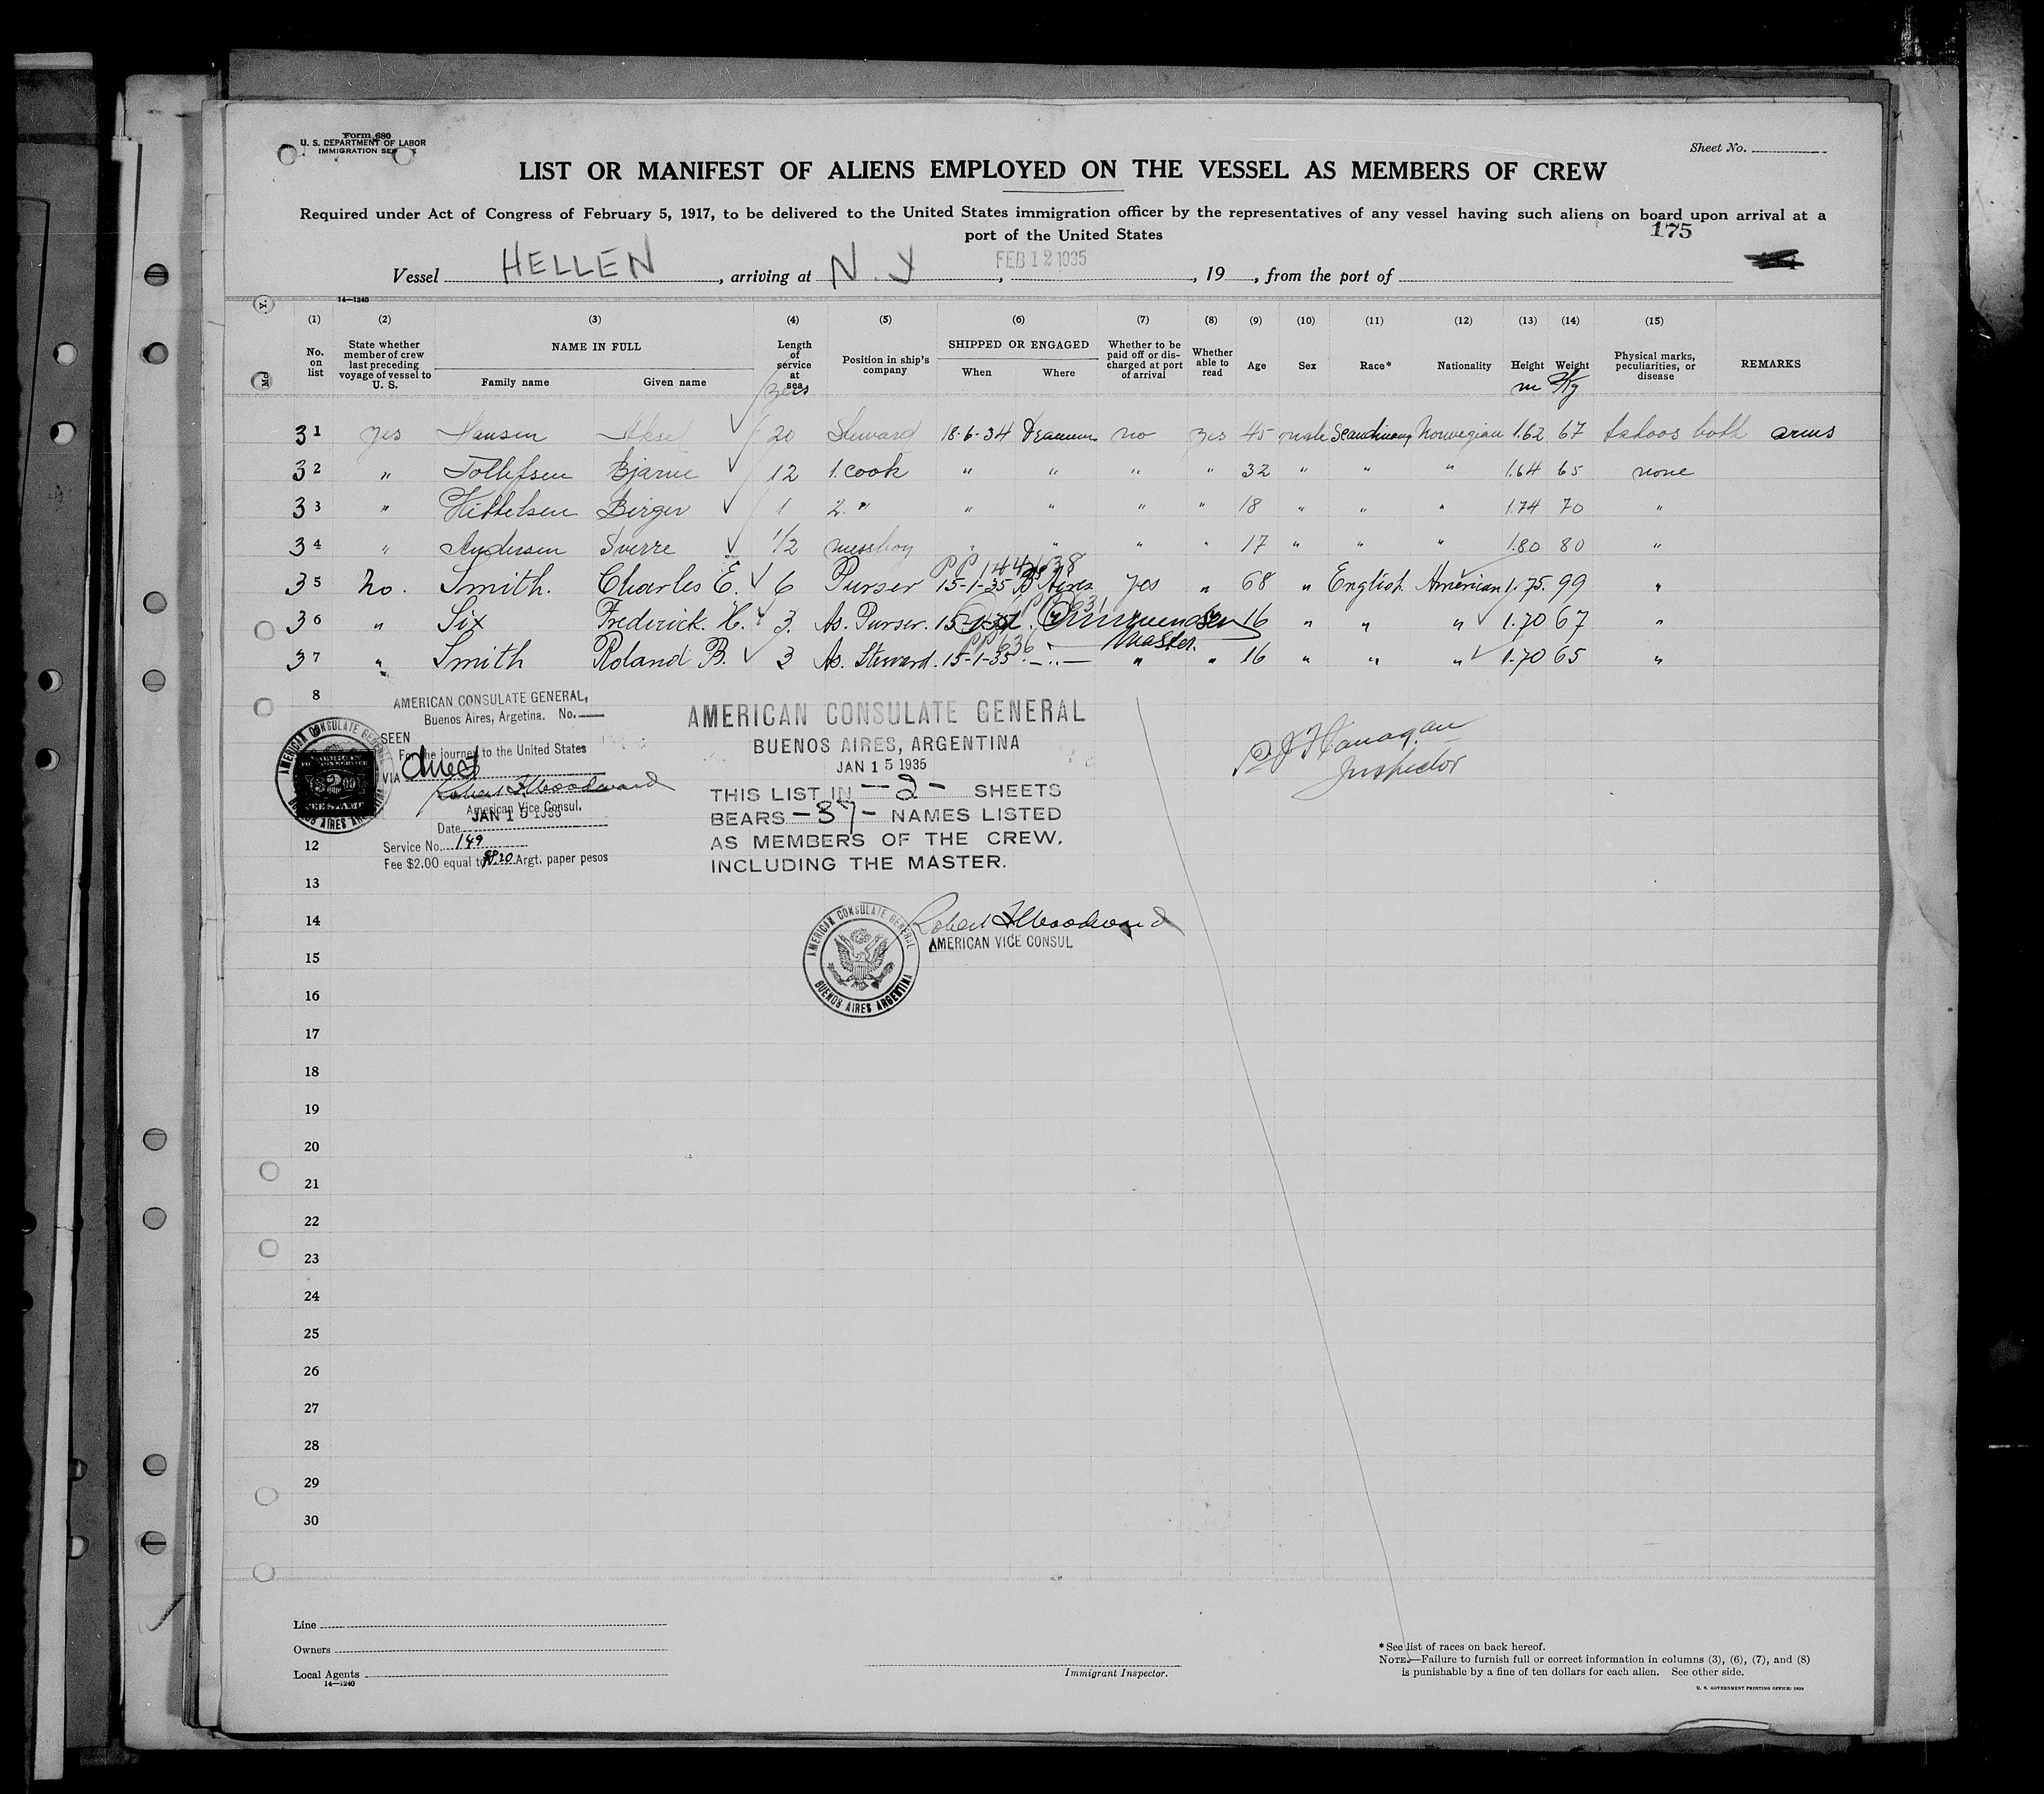 Form 680
U. S. DEPARTMENT OF LABOR
IMMIGRATION
Sheet No.
LIST OR MANIFEST OF ALIENS EMPLOYED ON THE VESSEL AS MEMBERS OF CREW
Required under Act of Congress of February 5, 1917, to be delivered to the United States immigration officer by the representatives of any vessel having such aliens on board upon arrival at a
port of the United States
175
Vessel HELLEN, arriving at N. Y, FEB 12 1935, 19 , from the port of
14—1240
(1) (2) (3) (4) (5) (6) (7) (8) (9) (10) (11) (12) (13) (14) (15)
No. on list
State whether member of crew last preceding voyage of vessel to U. S.
NAME IN FULL
Family name Given name
Length of service at sea
Position in ship's company
SHIPPED OR ENGAGED
When Where
Whether to be paid off or discharged at port of arrival
Whether able to read
Age Sex Race* Nationality Height Weight
Physical marks, peculiarities, or disease
REMARKS
m Kg
31 yes Hansen Aksel 20 Steward 18-6-34 no yes 45 male Norwegian 1.62 67 tatoos both arms
32 " Tollefsen Bjarne 12 1. cook " " " " 32 " " " 1.64 65 none
33 " Kittelsen Birger 1 2. " " " " " 18 " " " 1.74 70 "
34 " Andersen Sverre 1/2 messboy " " " " 17 " " " 1.80 80 "
35 No. Smith. Charles E. 6 Purser 15-1-35 B Aires yes " 68 " English. American 1.75. 99 "
36 " Six Frederick. H. 3. As. Purser. 16 " " " 1.70 67 "
Master.
37 " Smith Roland B. 3 As. Steward. 15-1-35 —"— " " 16 " " " 1.70 65 "
8
AMERICAN CONSULATE GENERAL,
Buenos Aires, Argetina. No.
SEEN
For the journey to the United States
VIA direct
Robert F Woodward
American Vice Consul.
JAN 15 1935
Date
Service No. 149
Fee $2.00 equal to Argt. paper pesos
AMERICAN CONSULATE GENERAL
BUENOS AIRES, ARGENTINA
JAN 15 1935
THIS LIST IN —2— SHEETS
BEARS —37— NAMES LISTED
AS MEMBERS OF THE CREW,
INCLUDING THE MASTER.
Flanagan
Inspector
Robert F Woodward
AMERICAN VICE CONSUL
AMERICAN CONSULATE GENERAL
BUENOS AIRES ARGENTINA
12
13
14
15
16
17
18
19
20
21
22
23
24
25
26
27
28
29
30
Line
Owners
Local Agents
14—1240
Immigrant Inspector.
* See list of races on back hereof.
NOTE.—Failure to furnish full or correct information in columns (3), (6), (7), and (8)
is punishable by a fine of ten dollars for each alien. See other side.